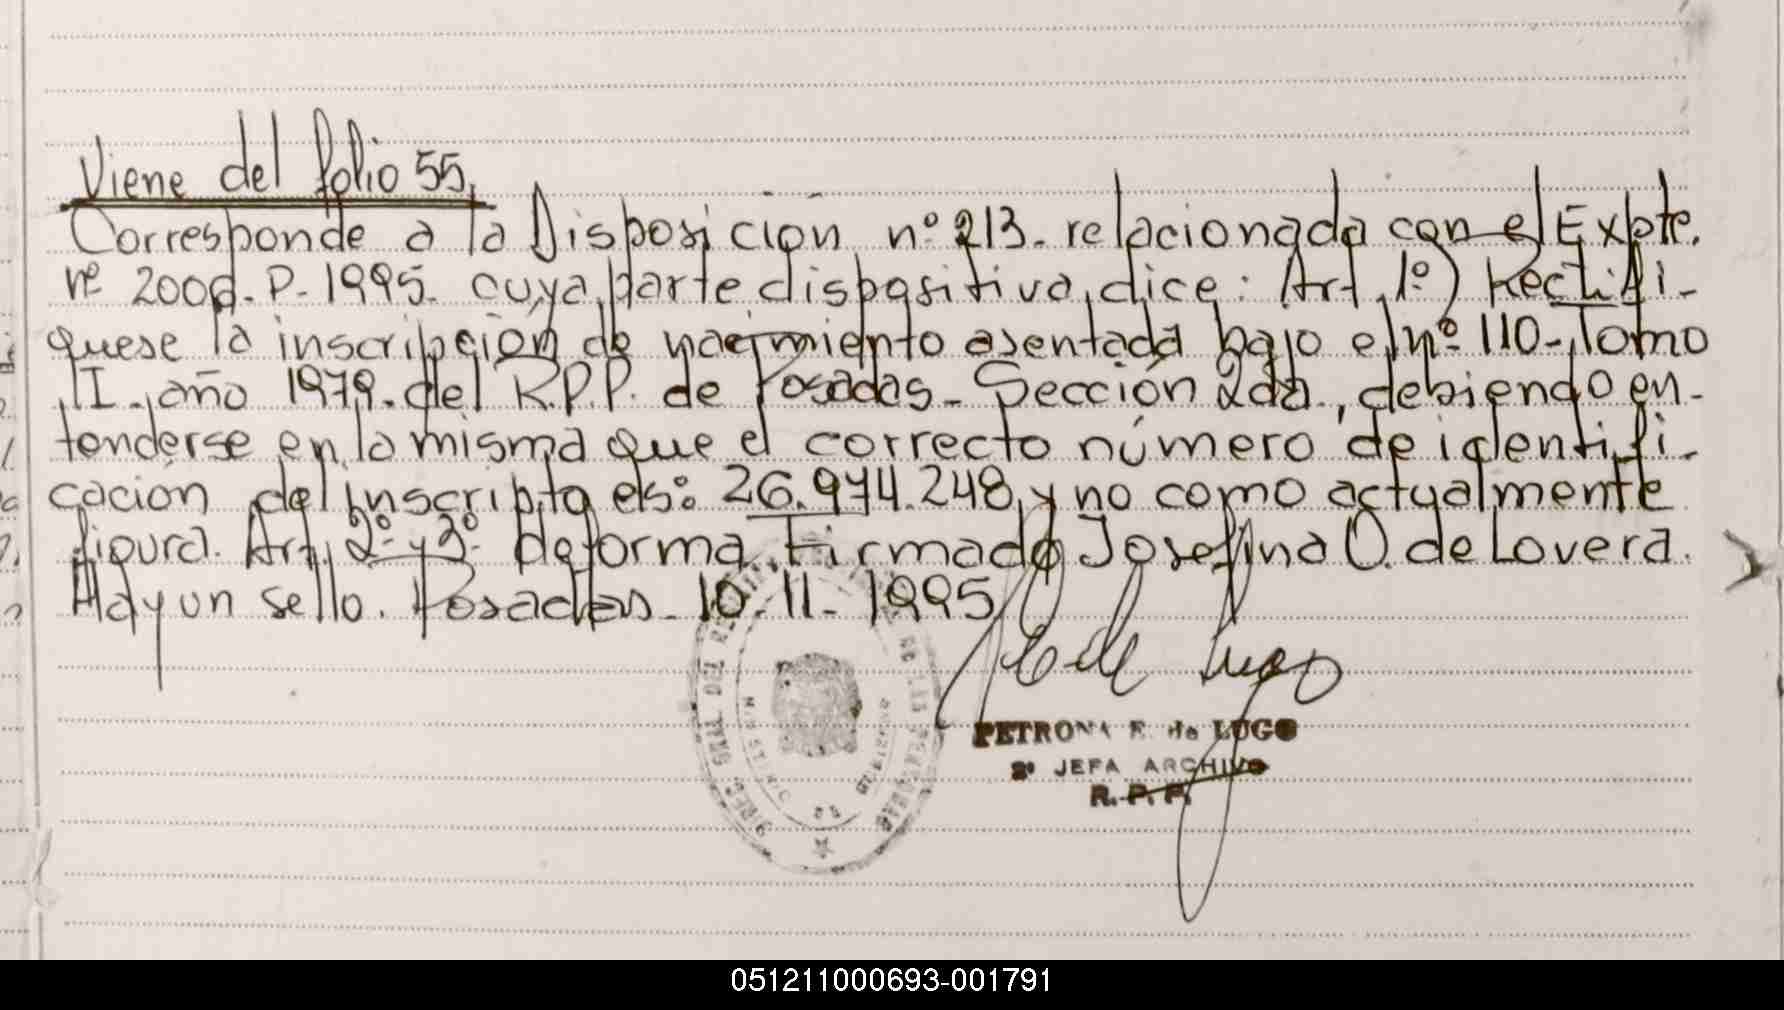 Viene del folio 55.
Corresponde a la Disposición nº 213. relacionada con el Expte.
nº 200d. P. 1995. cuya parte dispositiva, dice: Art. 1º) Rectifi-
quese la inscripción de nacimiento asentada bajo el nº 110-, Tomo
II., año 1979. del R.P.P. de Posadas_ Sección 2da., debiendo en-
tenderse en la misma que el correcto número de identifi-
cación del inscripto es: 26.974.248, y no como actualmente
figura. Art. 2º y 3º de forma. Firmado Josefina O. de Lovera.
Hay un sello. Posadas_ 10. 11. 1995
PETRONA E. de LUGO
2º JEFA ARCHIVO
R. P. P.
051211000693-001791